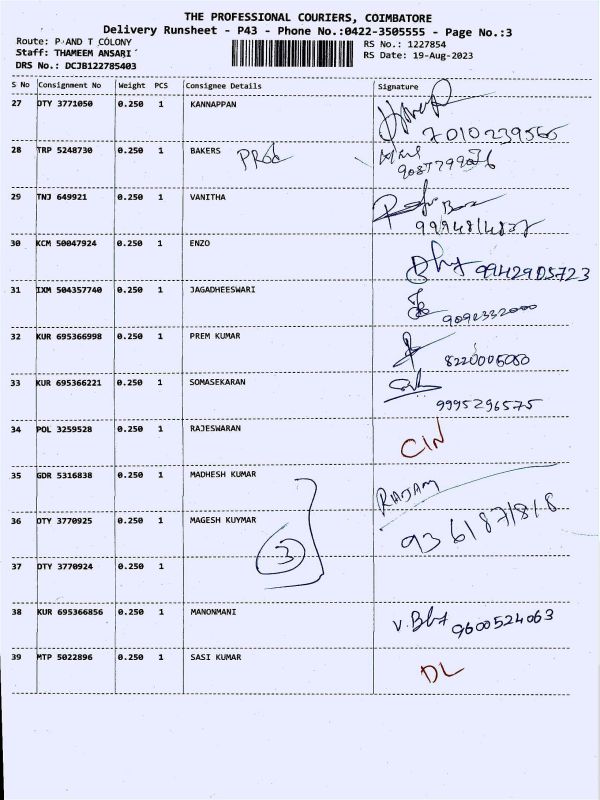 THE PROFESSIONAL COURIERS, COIMBATORE
Delivery Runsheet - P43 - Phone No.:0422-3505555 - Page No.:3
Route: P AND T COLONY
RS No.: 1227854
Staff: THAMEEM ANSARI
RS Date: 19-Aug-2023
DRS No.: DCJB122785403
S No Consignment No Weight PCS Consignee Details Signature
27 OTY 3771050 0.250 1 KANNAPPAN
7010239566
28 TRP 5248730 0.250 1 BAKERS
29 TNJ 649921 0.250 1 VANITHA
9994814837
30 KCM 50047924 0.250 1 ENZO
9942905723
31 IXM 504357740 0.250 1 JAGADHEESWARI
9092332000
32 KUR 695366998 0.250 1 PREM KUMAR
8220006060
33 KUR 695366221 0.250 1 SOMASEKARAN
9995296575
34 POL 3259528 0.250 1 RAJESWARAN
CIN
35 GDR 5316838 0.250 1 MADHESH KUMAR
RAJAM
36 OTY 3770925 0.250 1 MAGESH KUYMAR
9361871818
3
37 OTY 3770924 0.250 1
38 KUR 695366856 0.250 1 MANONMANI
9600524063
39 MTP 5022896 0.250 1 SASI KUMAR
DL